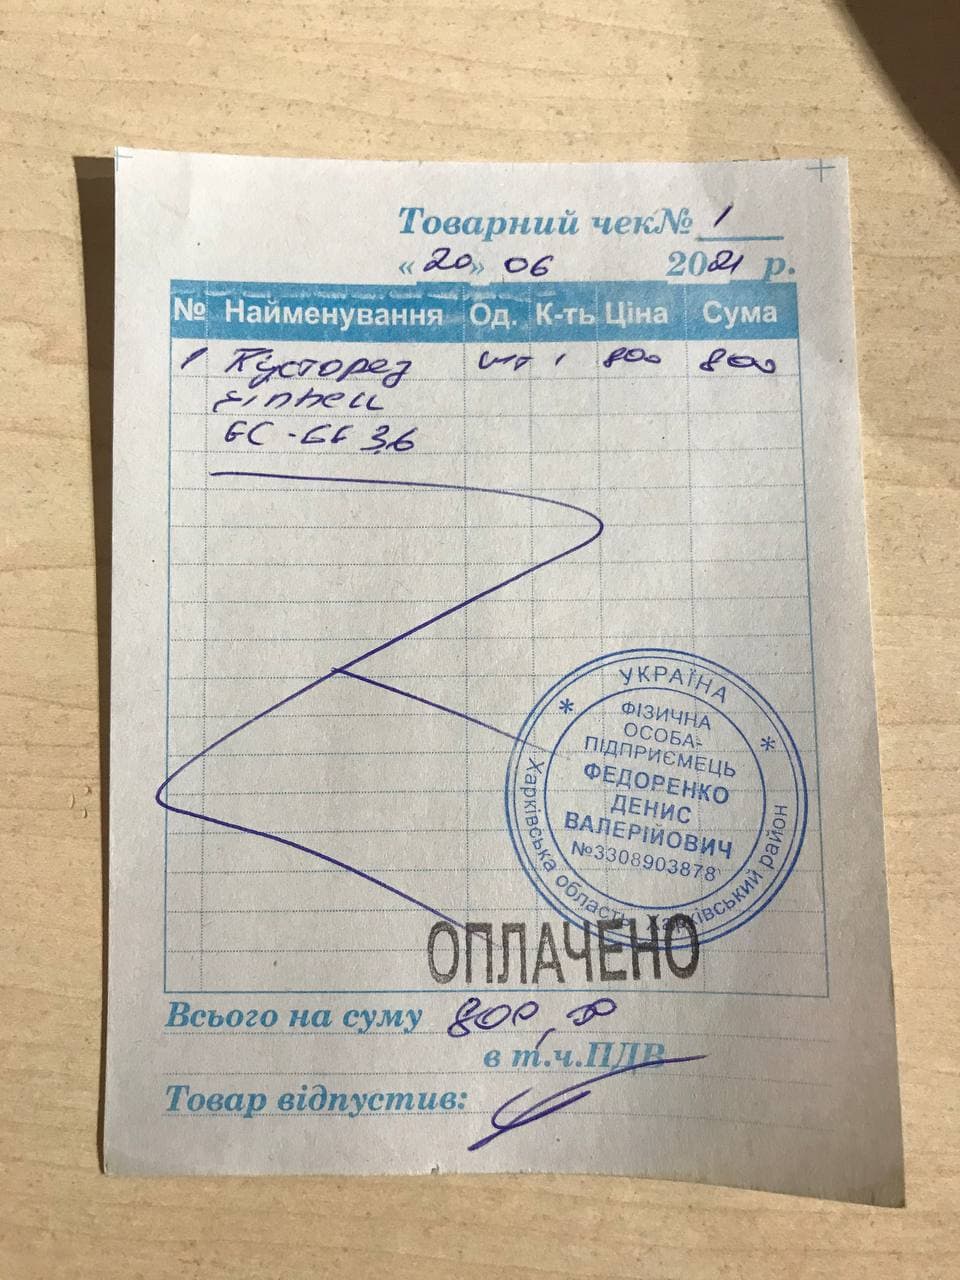 Товарний чек№ 1
«20» 06 2021 р.
№ Найменування Од. К-ть Ціна Сума
1 Кусторез шт 1 800 800
Einhell
GC-CG 3,6
УКРАЇНА
ФІЗИЧНА
ОСОБА-
ПІДПРИЄМЕЦЬ
ФЕДОРЕНКО
ДЕНИС
ВАЛЕРІЙОВИЧ
№3308903878
Харківська область Харківський район
ОПЛАЧЕНО
Всього на суму 800,00
в т.ч.ПДВ
Товар відпустив: